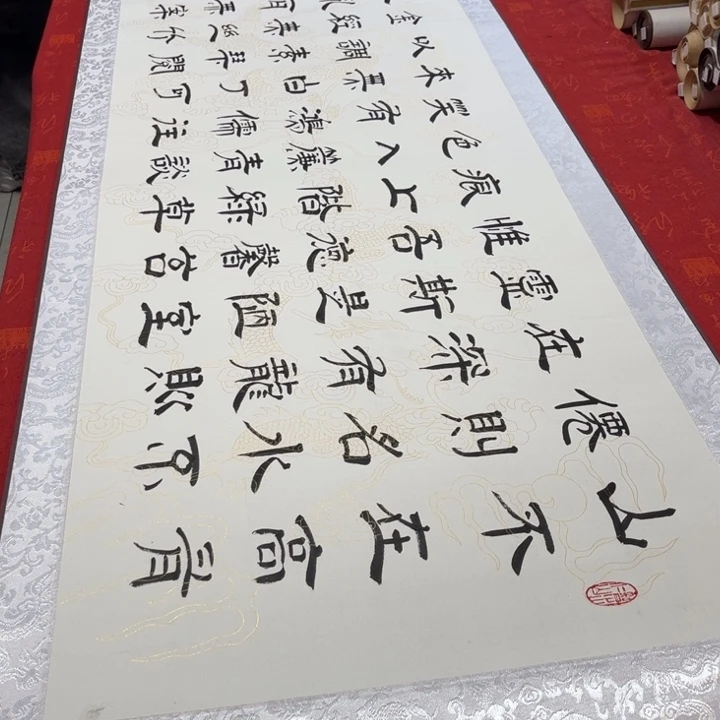 山不在高有
僊則名水不
在深有龍則
靈斯是陋室
惟吾德馨苔
痕上階綠草
色入簾青談
笑有鴻儒往
來無白丁可
以調素琴閱
金經無絲竹
無案